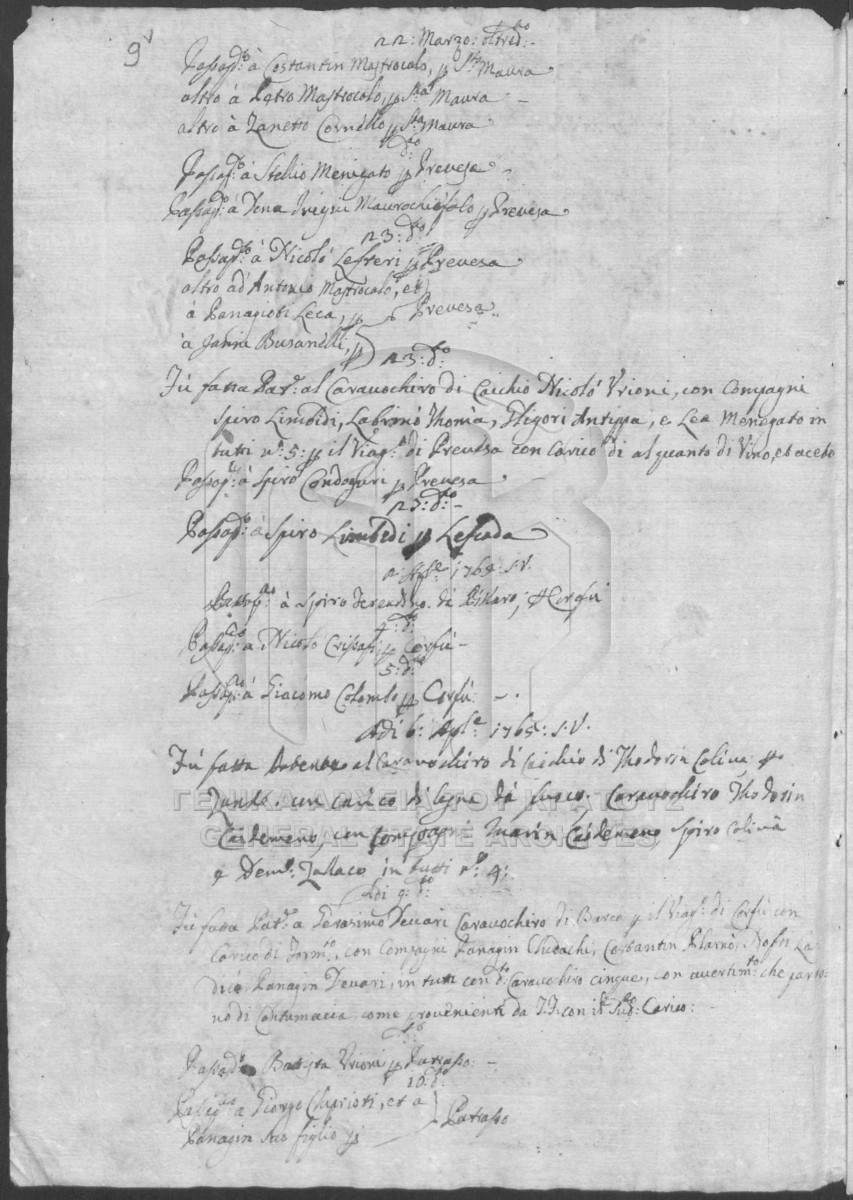 9v
22: Marzo: oltred:to
Passap:to à Costantin Mastrocolo, p S.ta Maura
altro à Pietro Mastrocolo, p S.ta Maura
altro à Zanetto Cornello, p S.ta Maura
d:to
Passap:to à Stellio Menegato p Prevesa
Passap:to à Dona Maurochiefalo p Prevesa
23: d:to
Passap:to à Nicolò p Prevesa
altro ad Antonio Mastrocolo, et
à Panagioti Leca, p Prevesa
à Janni Busanelli, p
23: d:to
Fù fatta Pat:e al Caravochiro di Caichio Nicolò Vrioni, con Compagni
Spiro Limbidi, Labrinò Thomà, Gligori Antippa, e Lea Menegato in
tutti n:o 5: p il Viag:o di Prevesa con Carico di alquanto di Vino, et aceto
Passap:to à Spiro Condoguri p Prevesa
23: d:to
Passap:to à Spiro Limbidi p Lescada
Ap:le 1765: S.V.
Passap:to à Spiro di Corfù
4: d:to
Passap:to à Nicolo Crissafi, p Corfù
5: d:to
Passap:to à Giacomo Colombo p Corfù
Adi 6: Ap:le 1765: S.V.
Fù fatta al Caravochiro di Caichio di Thodorin Colivà p
Zante, con carico di legna dà fuoco, Caravochiro Thodorin
Cademeno, con Compagni Marin Cademeno, Spiro Colivà
e Dem:o Zallaco in tutti n:o 4:
Adi 9: d:to
Fù fatta Pat:e a Gerasimo Devari Caravochiro di Barca p il Viag:o di Corfù con
Carico di Form:o, con Compagni Panagin Costantin
Panagin Devari, in tutti con d:to Caravochiro cinque, con avertim:to che parto-
no di Contumacia come provenienti da T.F. con il Sud:o Carico:
d:to
Passap:to à Battista Vrioni p Patrasso:
10: d:to
Passap:to à Giorgo Chiprioti, et a
Panagin suo figlio p Patrasso
ΓΕΝΙΚΑ ΑΡΧΕΙΑ ΤΟΥ ΚΡΑΤΟΥΣ
GENERAL STATE ARCHIVES